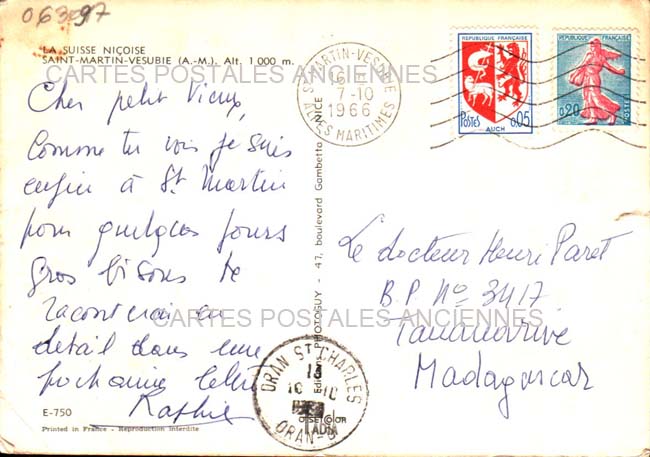 063097
LA SUISSE NIÇOISE
SAINT-MARTIN-VESUBIE (A.-M.). Alt. 1 000 m.
CARTES POSTALES ANCIENNES
Cher petit Vieux,
Comme tu vois je suis
enfin à St Martin
pour quelques jours
gros bisous te
raconterai en
detail dans une
prochaine lettre
E-750
Printed in France - Reproduction interdite
CARTES POSTALES ANCIENNES
ST MARTIN-VESUBIE
16H
7-10
1966
ALPES MARITIMES
REPUBLIQUE FRANÇAISE
POSTES
0,05
AUCH
REPUBLIQUE FRANÇAISE
0,20
POSTES
47, boulevard Gambetta - NICE
Le docteur Henri Paret
B.P. No 3417
Tananarive
Madagascar
ORAN ST CHARLES
13
ORAN